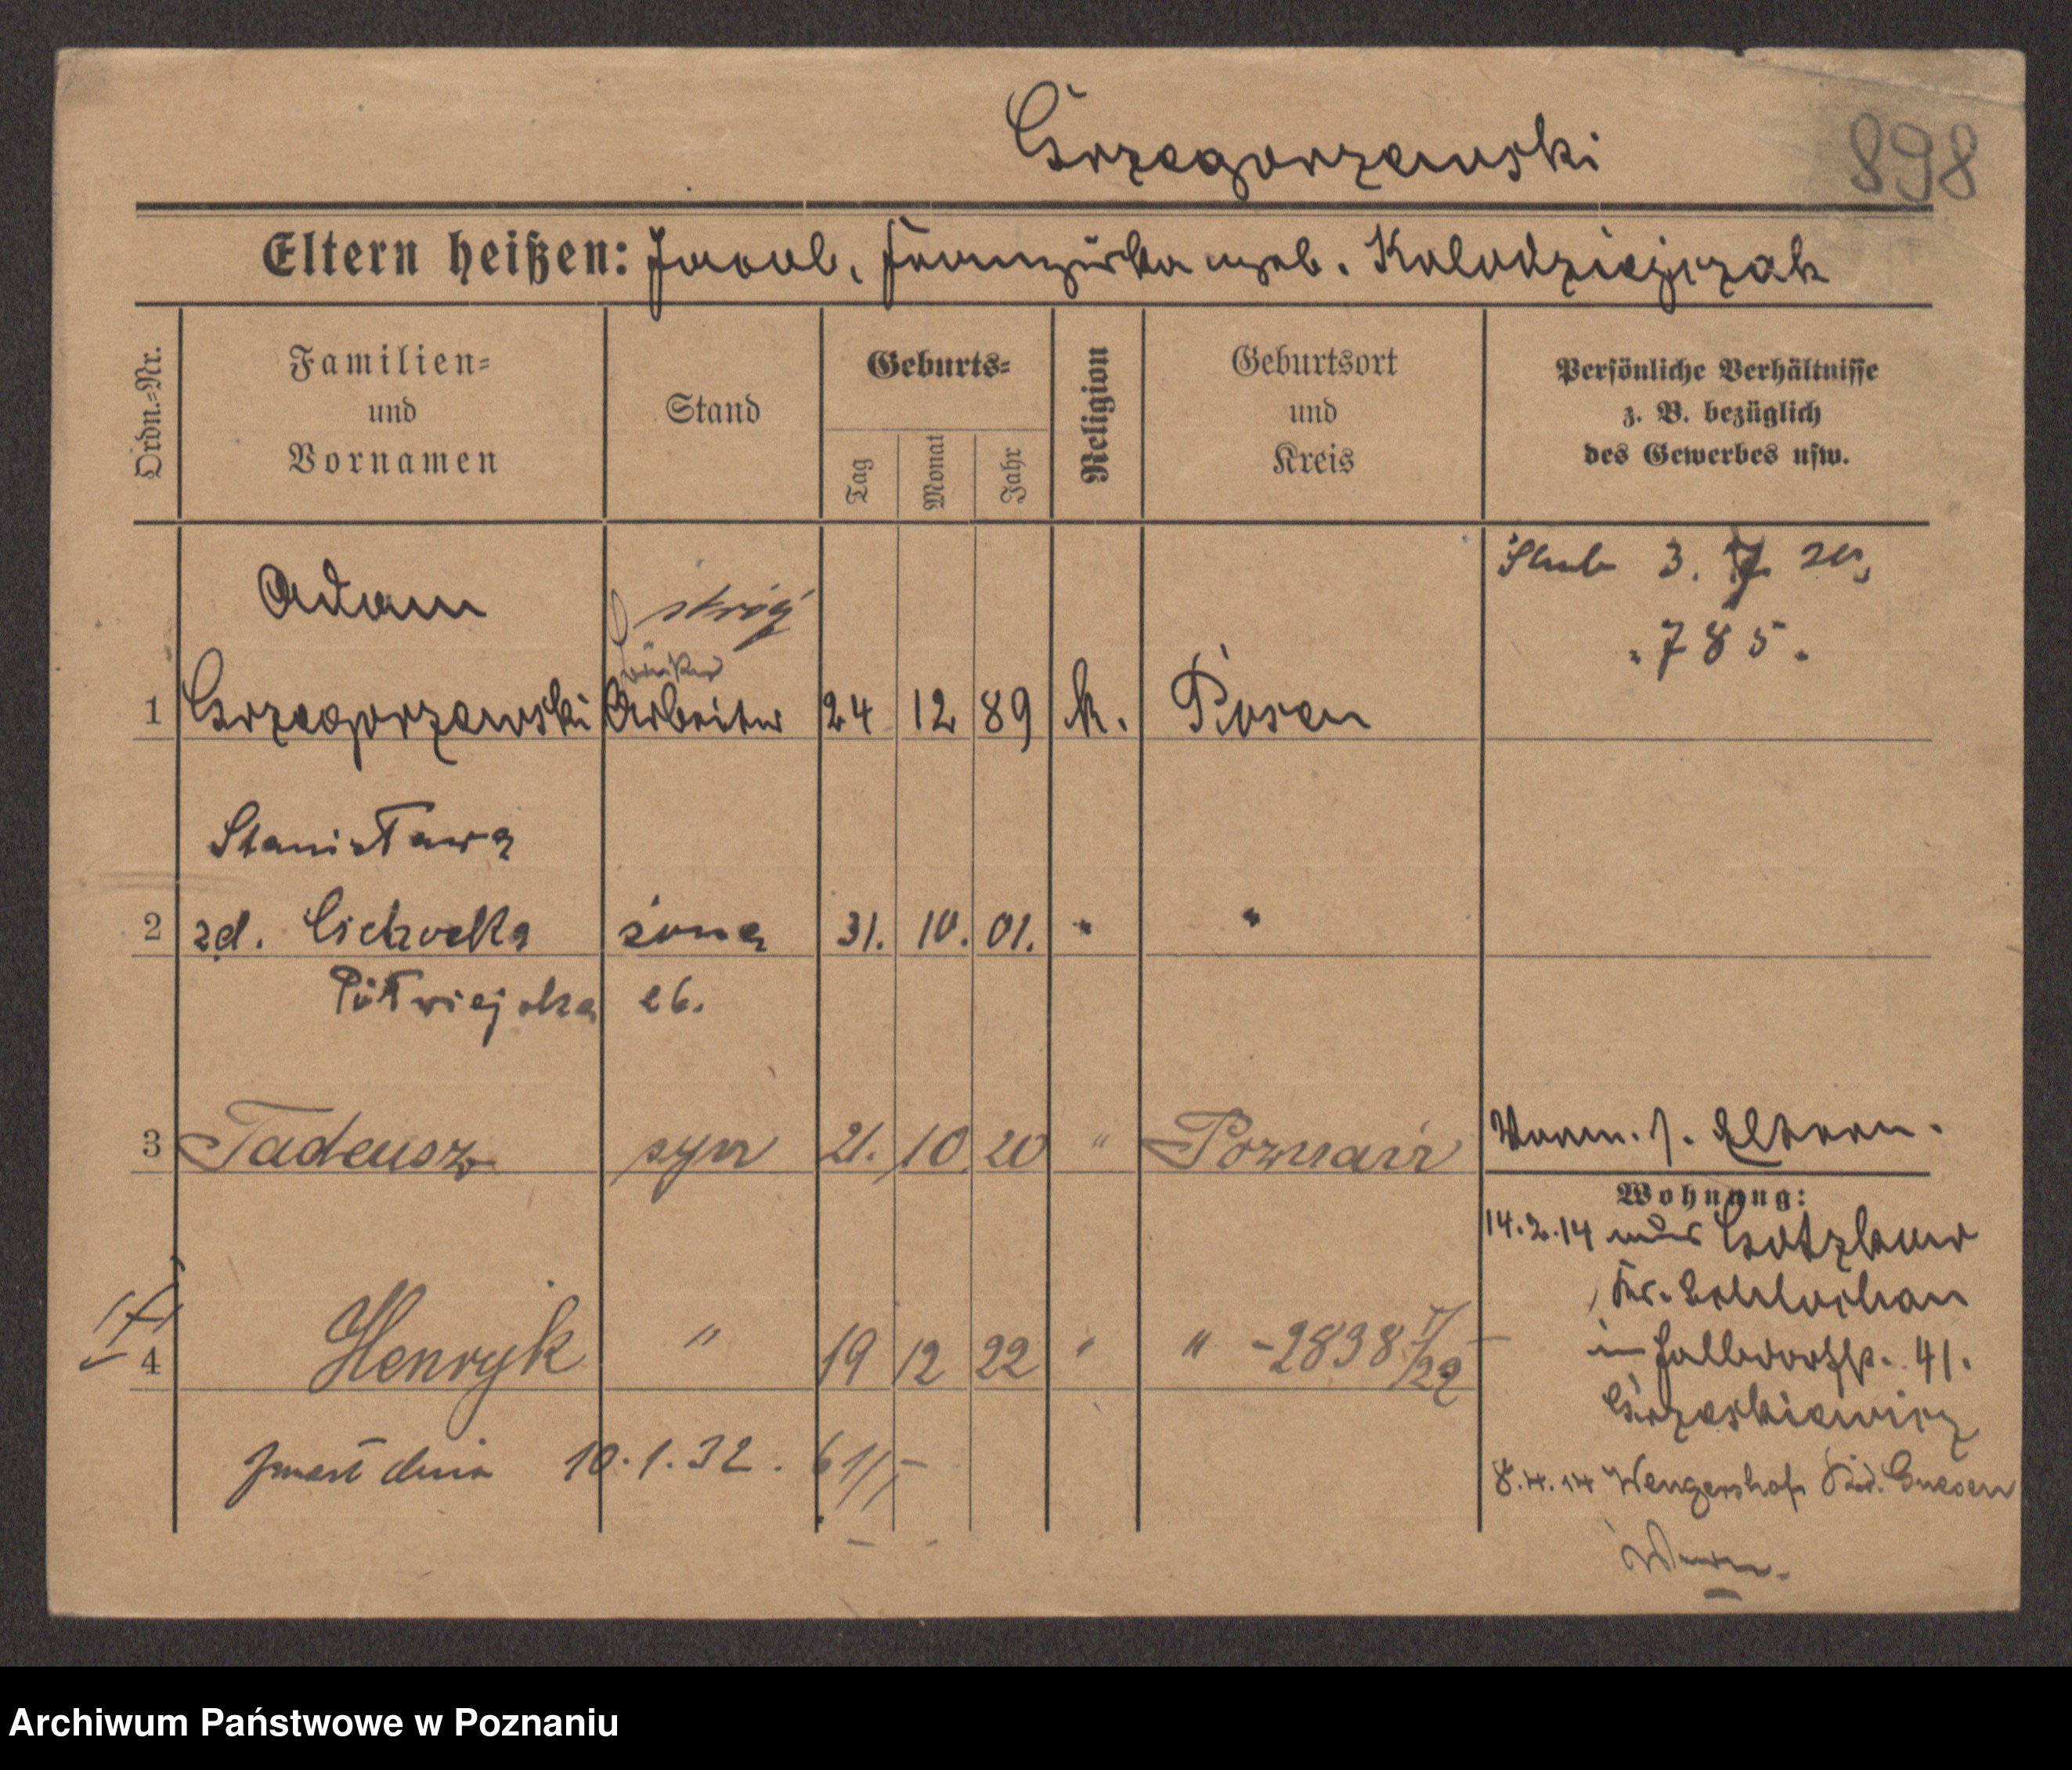 Grzegorzewski
898
Eltern heißen: Jacob, Franziska geb. Kolodziejczak
Ordn.-Nr.
Familien-
und
Vornamen
Stand
Geburts-
Tag
Monat
Jahr
Religion
Geburtsort
und
Kreis
Persönliche Verhältnisse
z. B. bezüglich
des Gewerbes usw.
Ślub 3. 7. 20,
785.
Adam
stróż
1 Grzegorzewski Arbeiter 24 12 89 k. Posen
Stanisława
2 zd. Cichocka żona 31. 10. 01. " "
Półwiejska 26.
3 Tadeusz syn 21. 10. 20 " Poznań
Vorm. s. Eltern.
Wohnung:
14.2.14 Gotzkau
Kr. Schlochau
41.
Grzeskiewicz
4 Henryk " 19 12 22 " " -2838
zmarł dnia 10.1.32.
8.4.14 Wengershof Krs. Gnesen
Archiwum Państwowe w Poznaniu